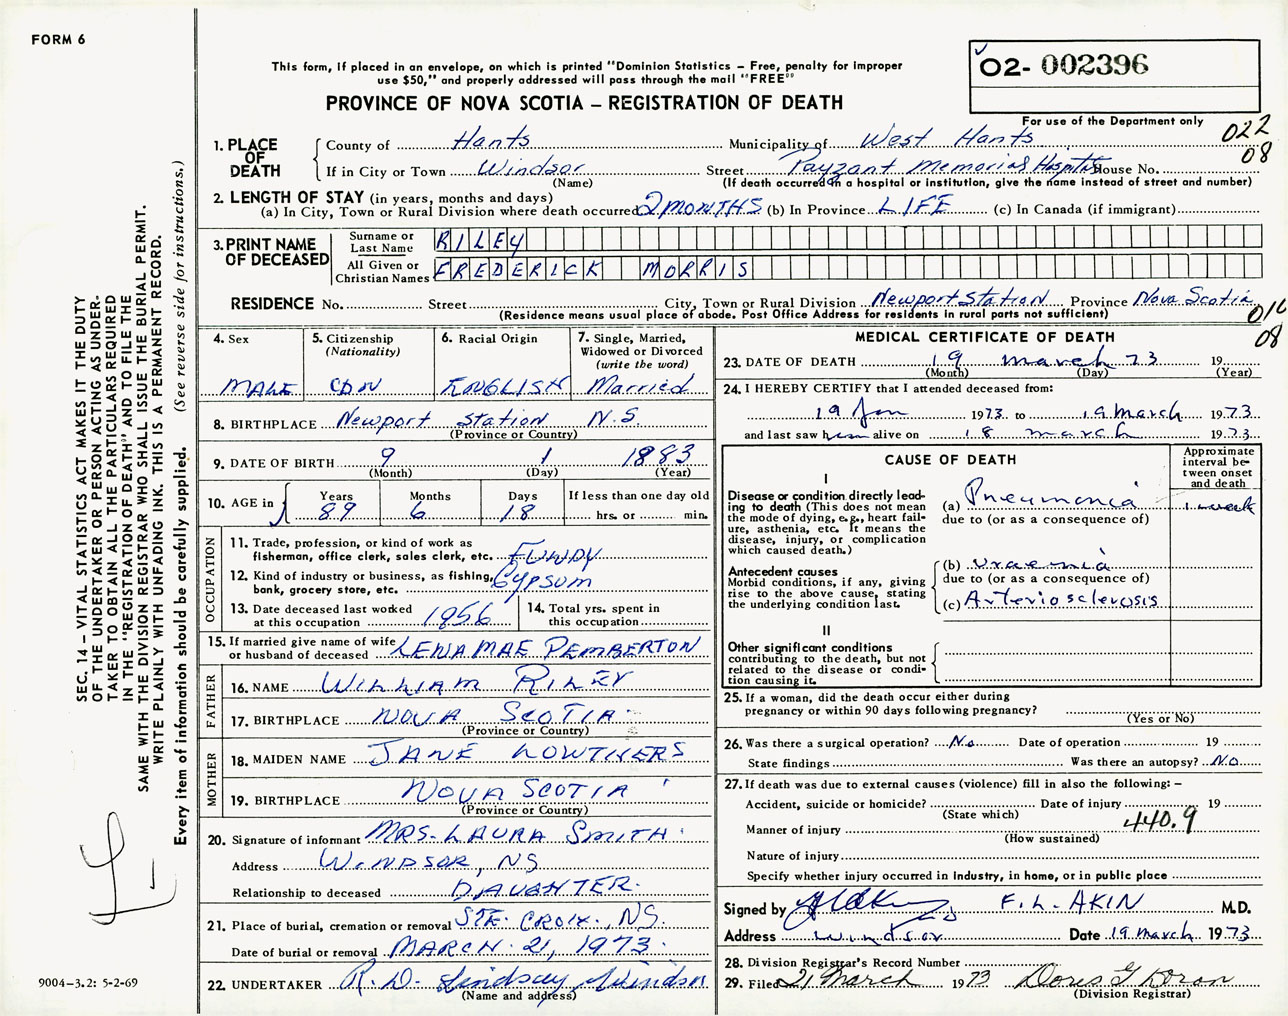 FORM 6
O2- 002396
This form, if placed in an envelope, on which is printed "Dominion Statistics – Free, penalty for improper
use $50," and properly addressed will pass through the mail "FREE"
PROVINCE OF NOVA SCOTIA – REGISTRATION OF DEATH
For use of the Department only
022
08
1. PLACE OF DEATH
County of Hants Municipality of West Hants
If in City or Town Windsor Street Payzant Memorial Hospital House No.
(Name) (If death occurred in a hospital or institution, give the name instead of street and number)
2. LENGTH OF STAY (in years, months and days)
(a) In City, Town or Rural Division where death occurred 2 MONTHS (b) In Province LIFE (c) In Canada (if immigrant)
3. PRINT NAME OF DECEASED
Surname or Last Name RILEY
All Given or Christian Names FREDERICK MORRIS
RESIDENCE No. Street City, Town or Rural Division Newport Station Province Nova Scotia
(Residence means usual place of abode. Post Office Address for residents in rural parts not sufficient)
016
08
4. Sex MALE
5. Citizenship (Nationality) CDN
6. Racial Origin ENGLISH
7. Single, Married, Widowed or Divorced (write the word) Married
8. BIRTHPLACE Newport Station N.S.
(Province or Country)
9. DATE OF BIRTH 9 1 1883
(Month) (Day) (Year)
10. AGE in Years 89 Months 6 Days 18 If less than one day old hrs. or min.
OCCUPATION
11. Trade, profession, or kind of work as
fisherman, office clerk, sales clerk, etc. FUNDY
12. Kind of industry or business, as fishing,
bank, grocery store, etc. Gypsum
13. Date deceased last worked
at this occupation 1956
14. Total yrs. spent in
this occupation
15. If married give name of wife
or husband of deceased LENA MAE PEMBERTON
FATHER
16. NAME WILLIAM RILEY
17. BIRTHPLACE NOVA SCOTIA
(Province or Country)
MOTHER
18. MAIDEN NAME JANE LOWTHERS
19. BIRTHPLACE NOVA SCOTIA
(Province or Country)
20. Signature of informant MRS. LAURA SMITH
Address WINDSOR, NS
Relationship to deceased DAUGHTER.
21. Place of burial, cremation or removal STE. CROIX, NS.
Date of burial or removal MARCH. 21, 1973.
22. UNDERTAKER R. D. Lindsay Windsor
(Name and address)
MEDICAL CERTIFICATE OF DEATH
23. DATE OF DEATH 19 March 73 19
(Month) (Day) (Year)
24. I HEREBY CERTIFY that I attended deceased from:
19 Jan 1973 to 19 March 1973
and last saw him alive on 18 March 1973
CAUSE OF DEATH
Approximate interval between onset and death
I
Disease or condition directly leading to death (This does not mean the mode of dying, e.g., heart failure, asthenia, etc. It means the disease, injury, or complication which caused death.)
(a) Pneumonia 1 week
due to (or as a consequence of)
Antecedent causes
Morbid conditions, if any, giving rise to the above cause, stating the underlying condition last.
(b) Uraemia
due to (or as a consequence of)
(c) Arteriosclerosis
II
Other significant conditions
contributing to the death, but not related to the disease or condition causing it.
25. If a woman, did the death occur either during
pregnancy or within 90 days following pregnancy?
(Yes or No)
26. Was there a surgical operation? No Date of operation 19
State findings Was there an autopsy? No
27. If death was due to external causes (violence) fill in also the following: –
Accident, suicide or homicide? Date of injury 19
(State which)
440.9
Manner of injury
(How sustained)
Nature of injury
Specify whether injury occurred in industry, in home, or in public place
Signed by F. L. AKIN M.D.
Address Windsor Date 19 March 1973
28. Division Registrar's Record Number
29. Filed 21 March 1973 Doris G Doran
(Division Registrar)
SEC. 14 – VITAL STATISTICS ACT MAKES IT THE DUTY
OF THE UNDERTAKER OR PERSON ACTING AS UNDER-
TAKER TO OBTAIN ALL THE PARTICULARS REQUIRED
IN THE "REGISTRATION OF DEATH" AND TO FILE THE
SAME WITH THE DIVISION REGISTRAR WHO SHALL ISSUE THE BURIAL PERMIT.
WRITE PLAINLY WITH UNFADING INK. THIS IS A PERMANENT RECORD.
Every item of information should be carefully supplied. (See reverse side for instructions.)
9004-3.2: 5-2-69